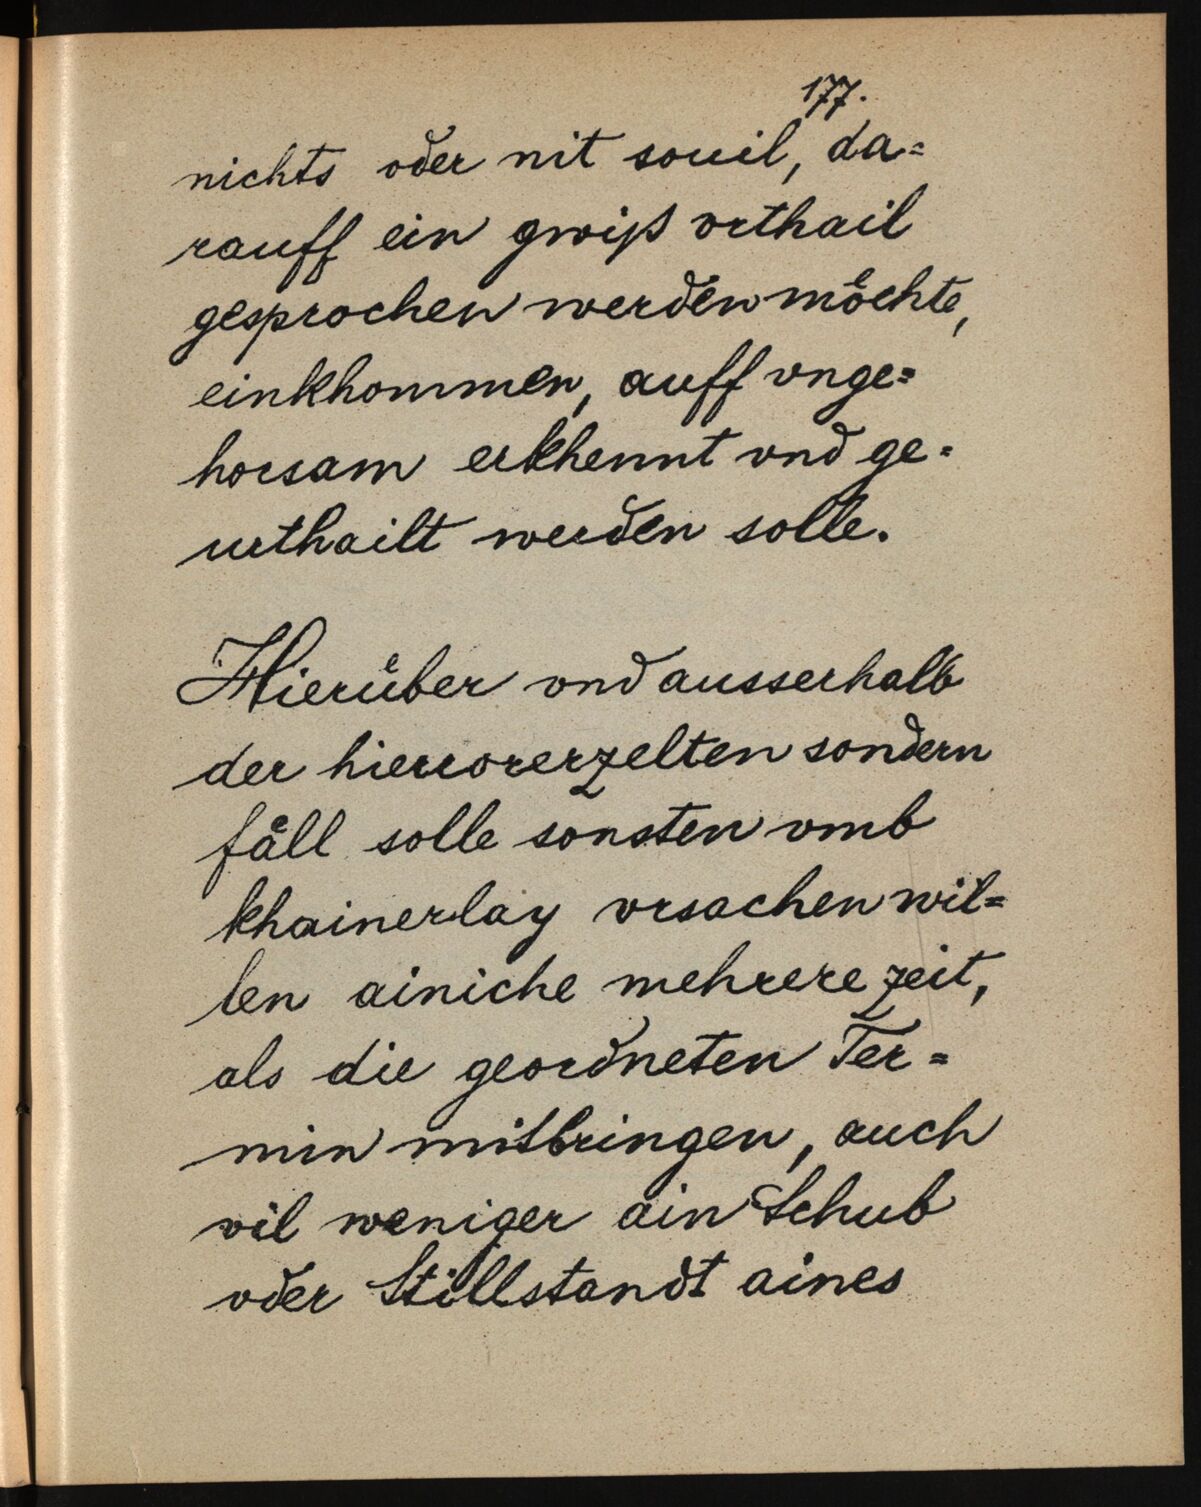 177.
nichts oder nit souil, da=
rauff ein gwiß vrthail
gesprochen werden möchte,
einkhommen, auff vnge=
horsam erkhennt vnd ge=
urthailt werden solle.
Hierüber vnd ausserhalb
der hieruorerzelten sondern
fäll solle sonsten vmb
khainerlay vrsachen wil=
len ainiche mehrere zeit,
als die geordneten Ter=
min mitbringen, auch
vil weniger ain Schub
oder Stillstandt aines